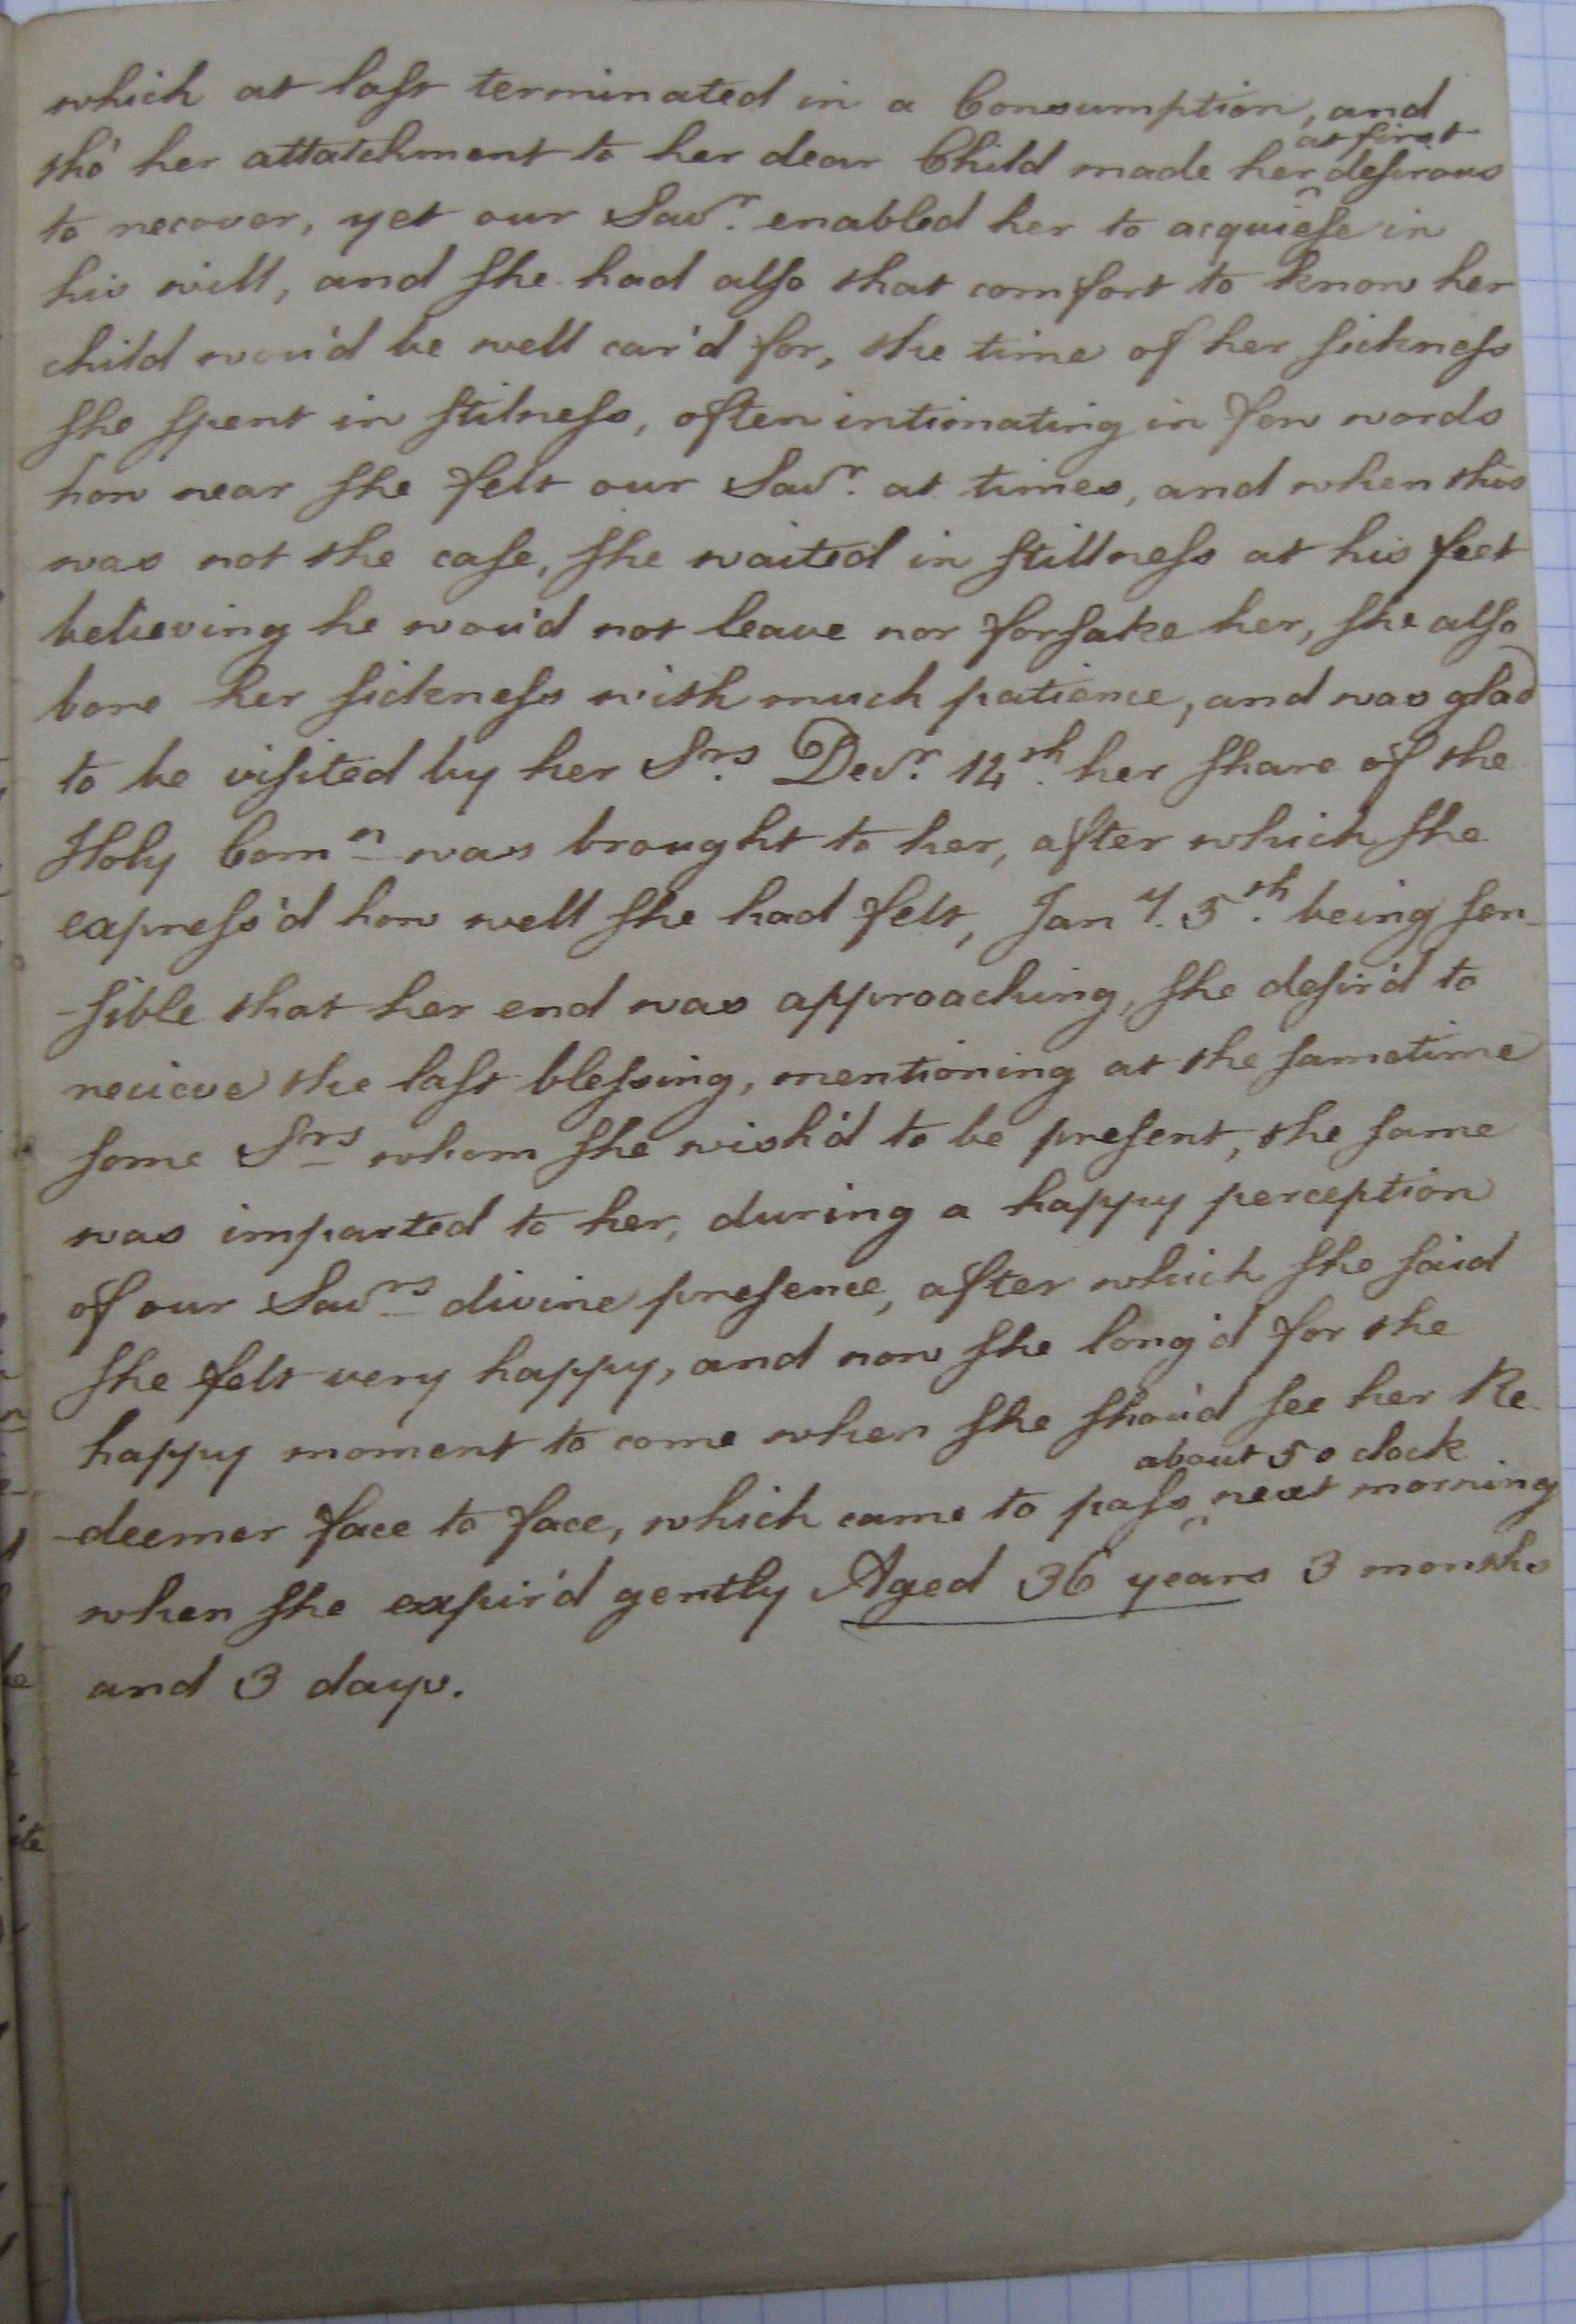 which at last terminated in a Consumption, and
tho' her attatchment to her dear Child made her ^at first^ desirous
to recover, yet our Savr. enabled her to acquiese in
his will, and she had also that comfort to know her
child wou'd be well car'd for, the time of her sickness
she spent in stilness, often intimating in few words
how near she felt our Savr. at times, and when this
was not the case, she waited in stillness at his feet
believing he wou'd not leave nor forsake her, she also
bore her sickness with much patience, and was glad
to be visited by her Srs. Decr. 14th. her share of the
Holy Comn was brought to her, after which she
express'd how well she had felt, Jany. 5th. being sen-
-sible that her end was approaching, she desir'd to
recieve the last blessing, mentioning at the sametime
some Srs whom she wish'd to be present, the same
was imparted to her, during a happy perception
of our Savrs divine presence, after which she said
she felt very happy, and now she long'd for the
happy moment to come when she shou'd see her Re-
-deemer face to face, which came to pass ^about 5 o clock^ next morning
when she expir'd gently Aged 36 years 3 months
and 3 days.